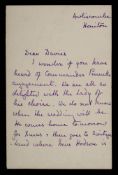 Dear Davies
I wonder if you have
heard of Commander
engagement. We are all so
delighted with the lady of
his choice. We do not know
when the wedding will be
He comes home tomorrow
for
where